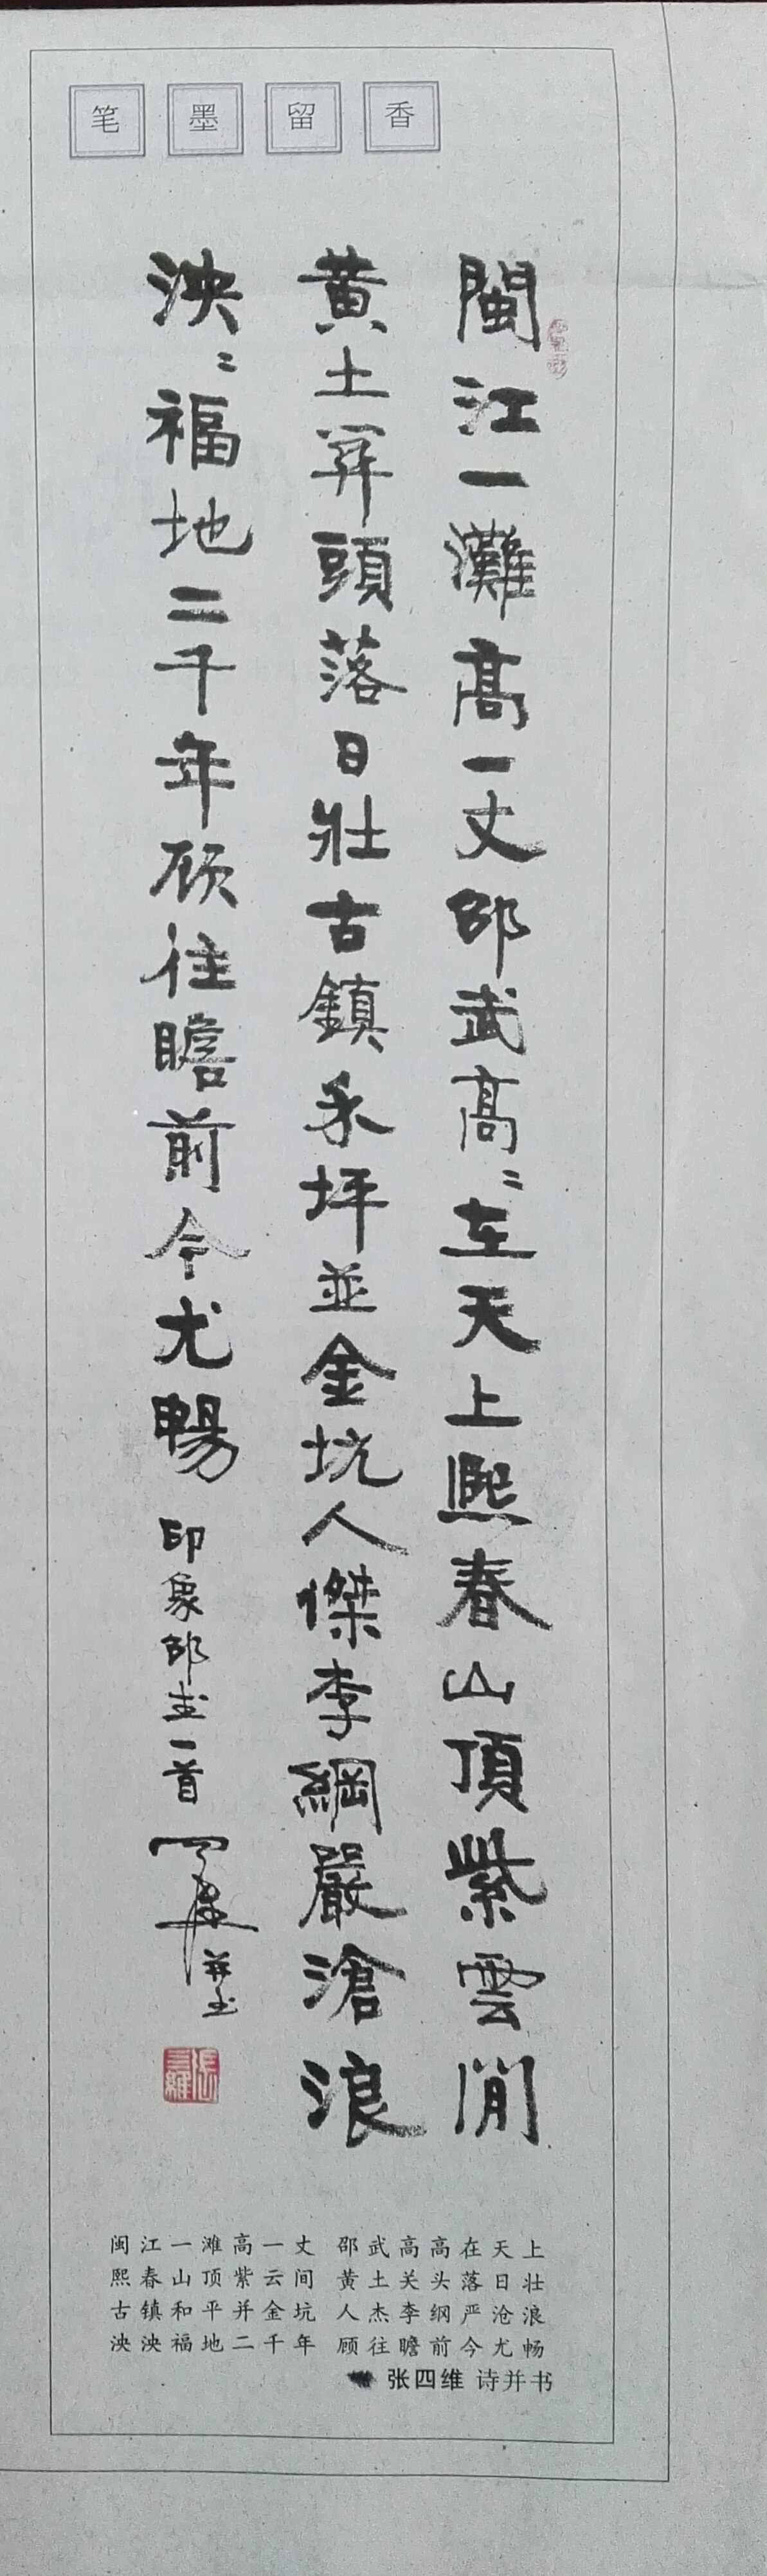 笔墨留香
閩江一灘高一丈邵武高〻在天上熙春山頂紫雲間
黄土関頭落日壮古鎮禾坪並金坑人傑李綱嚴滄浪
泱〻福地二千年顾往瞻前今尤暢
印象邵武一首
四维并书
張四維
闽江一滩高一丈 邵武高高在天上
熙春山顶紫云间 黄土关头落日壮
古镇和平并金坑 人杰李纲严沧浪
泱泱福地二千年 顾往瞻前今尤畅
张四维 诗并书